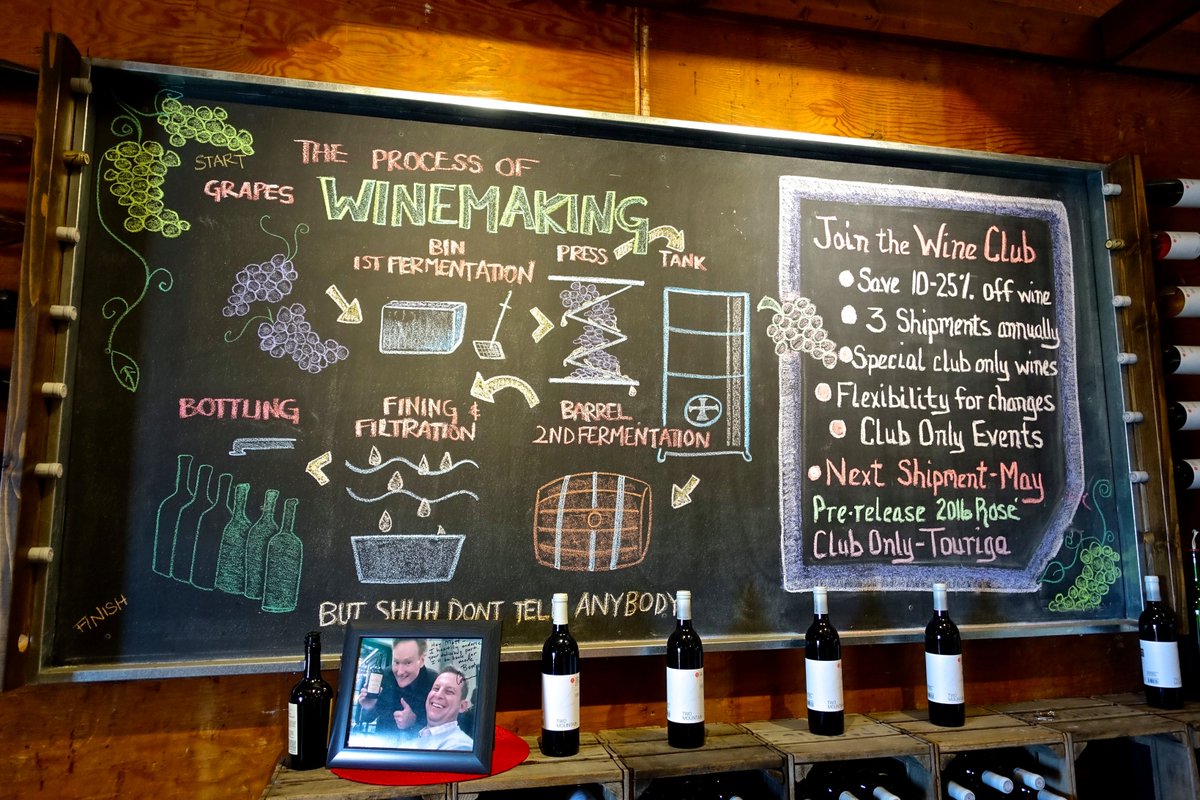 START
GRAPES
THE PROCESS OF
WINEMAKING
BIN
1ST FERMENTATION
PRESS
TANK
BARREL
2ND FERMENTATION
FINING &
FILTRATION
BOTTLING
FINISH
BUT SHHH DONT TELL ANYBODY
Join the Wine Club
Save 10-25% off wine
3 Shipments annually
Special club only wines
Flexibility for changes
Club Only Events
Next Shipment-May
Pre-release 2016 Rosé
Club Only-Touriga
TWO
MOUNTAIN
TWO
MOUNTAIN
TWO
MOUNTAIN
TWO
MOUNTAIN